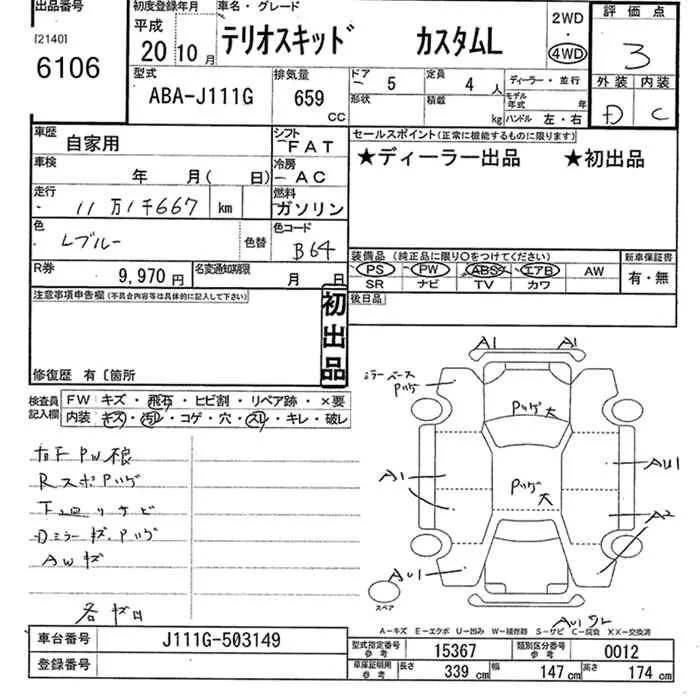 出品番号
[2140]
6106
初度登録年月
平成
20年10月
車名・グレード
テリオスキッド カスタムL
2WD
・
4WD
評価点
3
外装 内装
D C
型式
ABA-J111G
排気量
659
CC
ドア 5
定員 4 人
形状
積載 kg
ディーラー・並行
モデル年式 年
ハンドル 左・右
車歴
自家用
シフト
FAT
車検
年 月( 日)
冷房
AC
走行
11万1千667 km
燃料
ガソリン
色
Lブルー
色替
色コード
B64
R券
9,970 円
名変通知期限
月 日
セールスポイント(正常に機能するものに限ります)
★ディーラー出品 ★初出品
装備品 (純正品に限り○をつけてください)
PS PW ABS エアB AW
SR ナビ TV カワ
新車保証書
有・無
後日品
注意事項申告欄(不具合内容等は具体的に記入して下さい)
初出品
修復歴 有〔箇所
検査員記入欄
FW キズ・飛石・ヒビ割・リペア跡・×要
内装 キズ・汚レ・コゲ・穴・スレ・キレ・破レ
Rスポ Pハゲ
下回りサビ
Dミラーキズ、Pハゲ
AWキズ
A1 A1
ミラーベース
Pハゲ
Pハゲ大
A1
AU1
Pハゲ大
A2
AU1
スペア
AU1
A-キズ E-エクボ U-凹み W-補修跡 S-サビ C-腐食 XX-交換済
車台番号 J111G-503149
登録番号
型式指定番号 参考 15367
類別区分番号 参考 0012
車庫証明用 参考 長さ 339 cm 幅 147 cm 高さ 174 cm